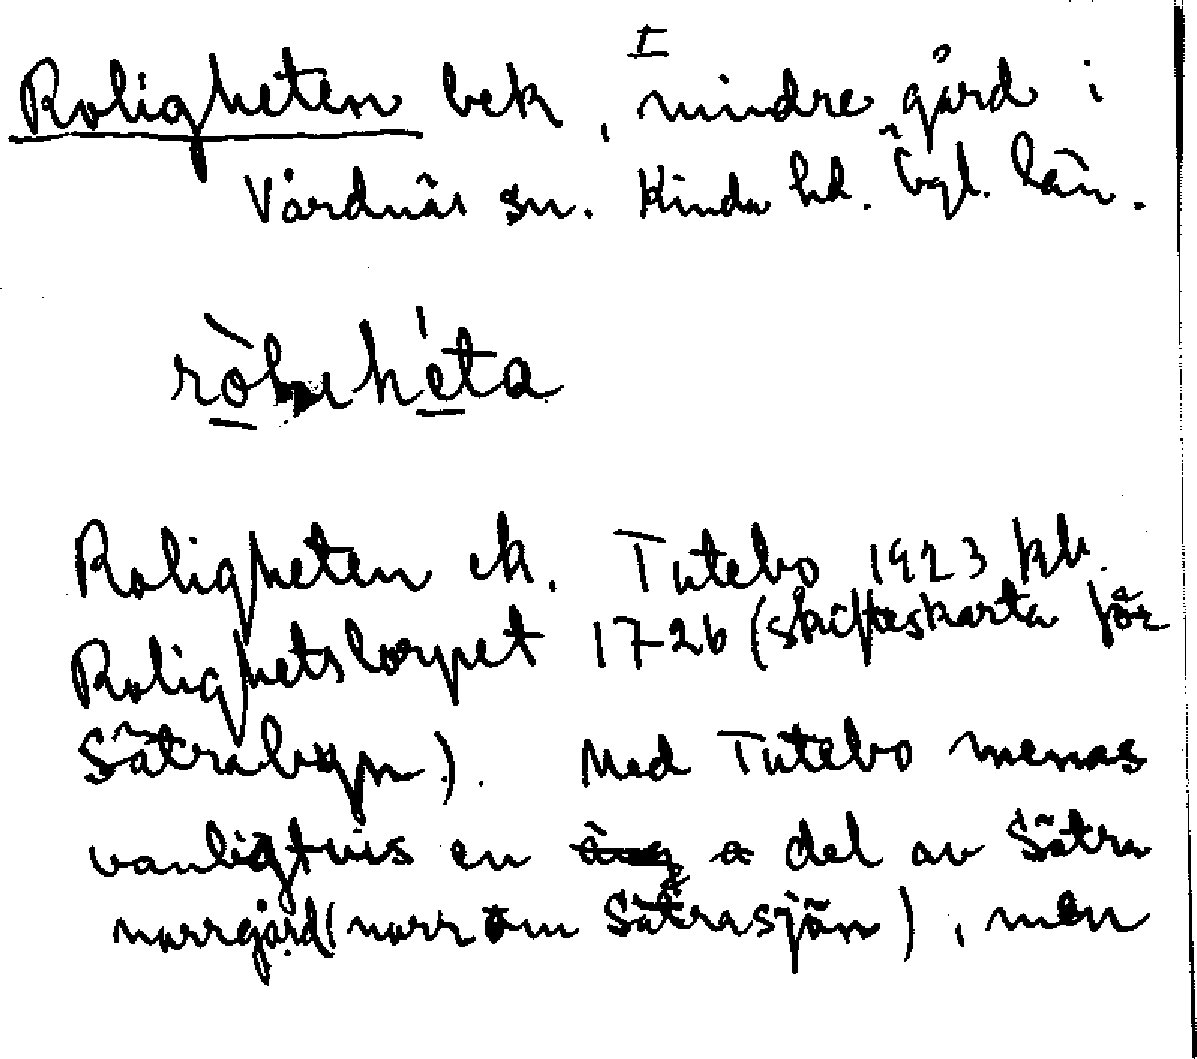 I
Roligheten bek, mindre gård i
Vårdnäs sn. Kinda hd. Ögl. län.
ròluhéta
Roligheten ek. Tutebo 1923 kb.
Rolighetstorpet 1726 (skifteskarta för
Sätrabyn). Med Tutebo menas
vanligtvis en äng a del av Sätra
norrgård (norr om Sätrasjön), men